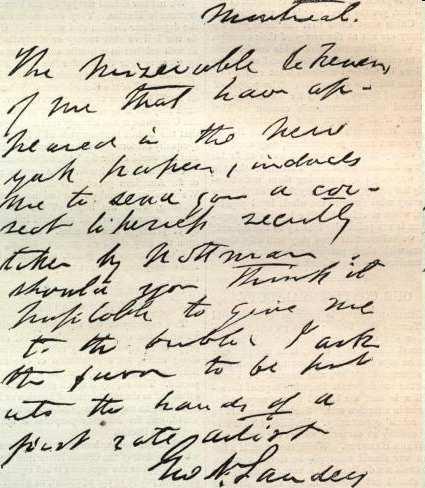 Montreal.
The miserable likeness,
of me that have ap-
peared in the new
york papers, induces
me to send you a cor-
rect likeness recently
taken by Nottman.
should you think it
to give me
to the public I ask
the favor to be put
into the hands of a
first rate artist
Geo N. Sanders